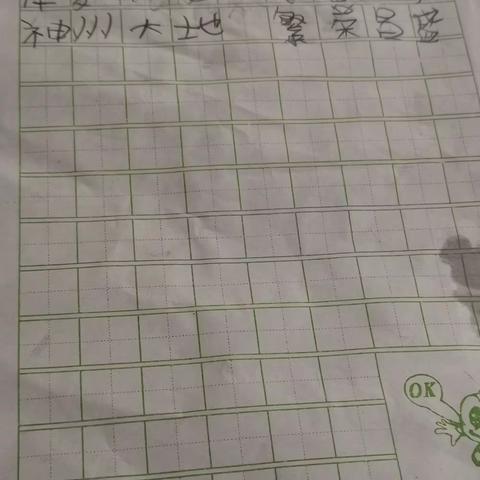 神州大地 繁荣昌盛
OK